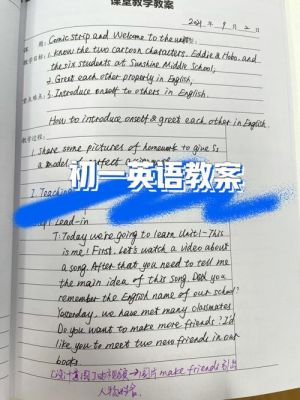 课堂教学教案
2024年9月2日
课 题: Comic strip and Welcome to the unit.
1. Know the two cartoon characters, Eddie & Hobo, and
the six students at Sunshine Middle School;
2. Greet each other properly in English;
3. Introduce oneself to others in English.
How to introduce oneself & greet each other in English.
教学过程:
1. Share some pictures of homework to give Ss
a model
初一英语教案
2. Teaching
Lead-in
T: Today we're going to learn Unit 1 - This
is me! First, Let's watch a video about
a song. After that you need to tell me
the main idea of this song. Do you
remember the English name of our school?
Yesterday, we have met many classmates.
Do you want to make more friends? I'd
like you to meet two new friends in our
books.
make friends 引出
人物